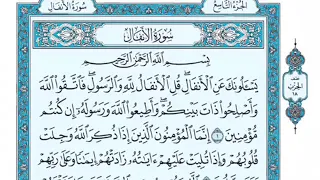 الجزء التاسع
سورة الأنفال
سُورَةُ الأَنفَالِ
بِسْمِ اللَّهِ الرَّحْمَٰنِ الرَّحِيمِ
يَسْـَٔلُونَكَ عَنِ ٱلْأَنفَالِ ۖ قُلِ ٱلْأَنفَالُ لِلَّهِ وَٱلرَّسُولِ ۖ فَٱتَّقُوا۟ ٱللَّهَ
وَأَصْلِحُوا۟ ذَاتَ بَيْنِكُمْ ۖ وَأَطِيعُوا۟ ٱللَّهَ وَرَسُولَهُۥٓ إِن كُنتُم
مُّؤْمِنِينَ ١ إِنَّمَا ٱلْمُؤْمِنُونَ ٱلَّذِينَ إِذَا ذُكِرَ ٱللَّهُ وَجِلَتْ
قُلُوبُهُمْ وَإِذَا تُلِيَتْ عَلَيْهِمْ ءَايَٰتُهُۥ زَادَتْهُمْ إِيمَٰنًا وَعَلَىٰ رَبِّهِمْ
نصف
الحزب
١٨